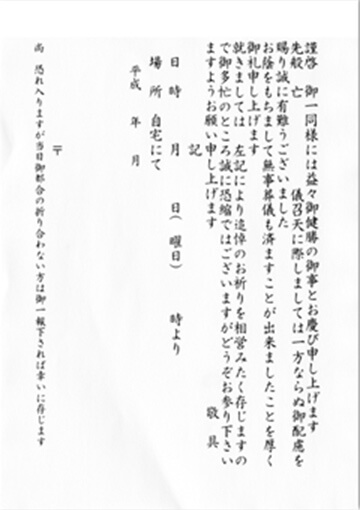 謹啓 御一同様には益々御健勝の御事とお慶び申し上げます
先般 亡 儀召天に際しましては一方ならぬ御配慮を
賜り誠に有難うございました
お陰をもちまして無事葬儀も済ますことが出来ましたことを厚く
御礼申し上げます
就きましては 左記により追悼のお祈りを相営みたく存じますの
で御多忙のところ誠に恐縮ではございますがどうぞお参り下さい
ますようお願い申し上げます 敬具
記
日時 月 日(曜日) 時より
場所 自宅にて
平成 年 月
〒
尚 恐れ入りますが当日御都合の折り合わない方は御一報下されば幸いに存じます